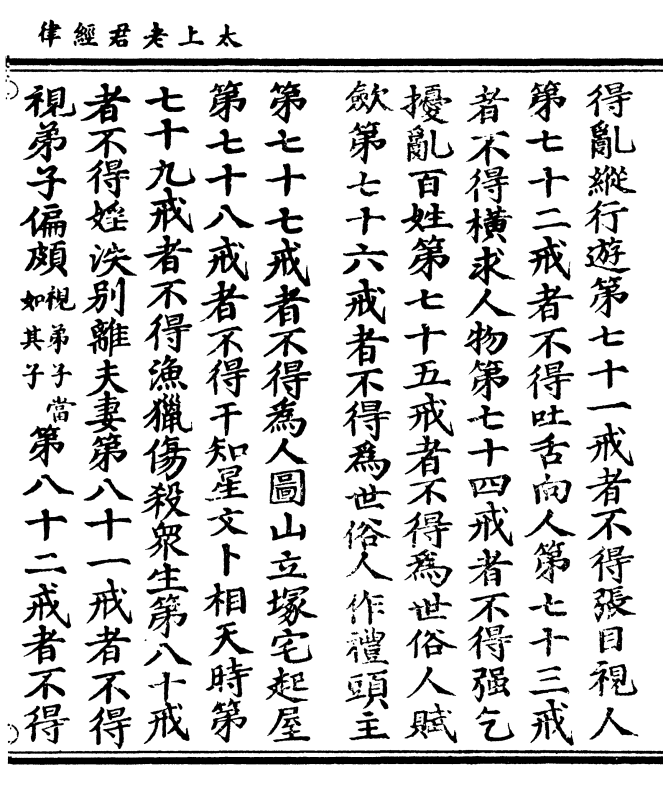 太上老君經律
得亂縱行遊第七十一戒者不得張目視人
第七十二戒者不得吐舌向人第七十三戒
者不得橫求人物第七十四戒者不得强乞
擾亂百姓第七十五戒者不得爲世俗人賦
歛第七十六戒者不得爲世俗人作禮頭主
第七十七戒者不得爲人圖山立塚宅起屋
第七十八戒者不得干知星文卜相天時第
七十九戒者不得漁獵傷殺衆生第八十戒
者不得婬泆別離夫妻第八十一戒者不得
視弟子偏頗視弟子當如其子第八十二戒者不得